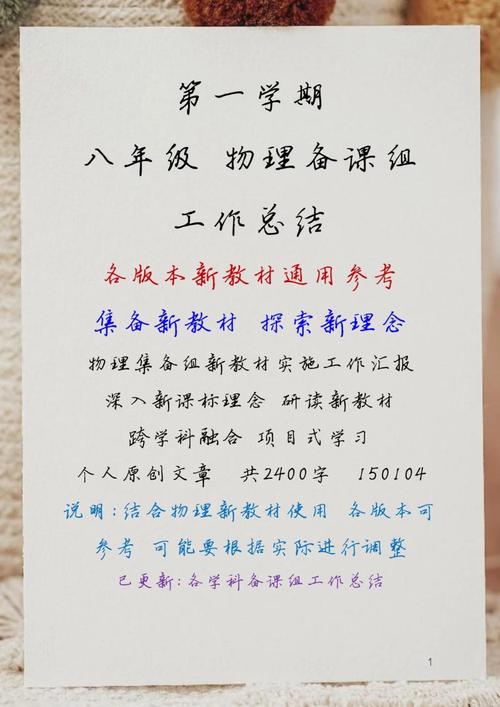 第一学期
八年级 物理备课组
工作总结
各版本新教材通用参考
集备新教材 探索新理念
物理集备组新教材实施工作汇报
深入新课标理念 研读新教材
跨学科融合 项目式学习
个人原创文章 共2400字 150104
说明:结合物理新教材使用 各版本可
参考 可能要根据实际进行调整
已更新:各学科备课组工作总结
1